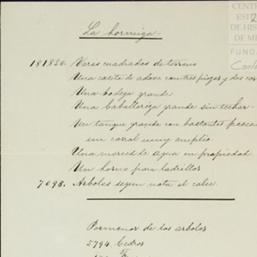 CENT
EST
DE HIS
DE M
FUND
CAR
La hormiga.
181820. Varas cuadradas de terreno
Una casita de adove con tres piezas y dos cor
Una bodega grande
Una Caballeriza grande sin techar
Un tanque grande con bastantes frescos
un corral muy amplio
Una merced de agua en propiedad
Un horno para ladrillos
7098. Arboles segun nota al calce.
Pormenor de los arboles
2794. Cedros